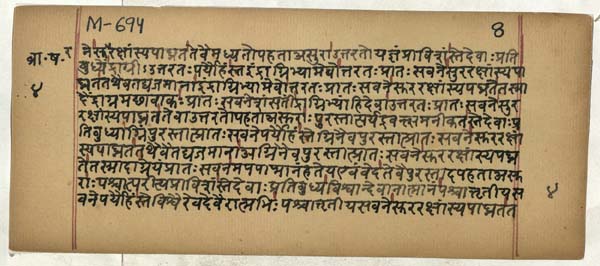 M-694
8
ब्रा.ष.
४
नेसुररक्षांस्यपाघ्नततेवैमध्यतोपहताअसुराउत्तरतोयज्ञंप्राविविक्षंस्तेदेवाःप्रति
बुध्येंद्राग्नीउत्तरतःपर्यौहंस्तइंद्राग्निभ्यामेवोत्तरतःप्रातःसवनेसुररक्षांस्यपा
घ्नततथैवैतद्यजमानाइंद्राग्निभ्यामेवोत्तरतःप्रातःसवनेसुररक्षांस्यपघ्नतेतस्मा
दैंद्राग्नमच्छावाकःप्रातःसवनेशंसतींद्राग्निभ्यांहिदेवाउत्तरतःप्रातःसवनेसुर
रक्षांस्यपाघ्नततेवाउत्तरतोपहताअसुराःपुरस्तात्पर्यद्रवन्त्समनीकतस्तेदेवाःप्र
तिबुध्याग्निंपुरस्तात्प्रातःसवनेपर्यौहंस्तेग्निनैवपुरस्तात्प्रातःसवनेसुररक्षां
स्यपाघ्नततथैवैतद्यजमानाअग्निनैवपुरस्तात्प्रातःसवनेसुररक्षांस्यपघ्न
तेतस्मादाग्नेयंप्रातःसवनमपपाप्मानंहतेयएवंवेदतेवैपुरस्तादपहताअसु
राःपश्चात्परीत्यप्राविविक्षंस्तेदेवाःप्रतिबुध्यविश्वान्देवानात्मानंपश्चात्तृतीयस
वनेपर्यौहंस्तेविश्वैरेवदेवैरात्मभिःपश्चात्तृतीयसवनेसुररक्षांस्यपाघ्नतत
४